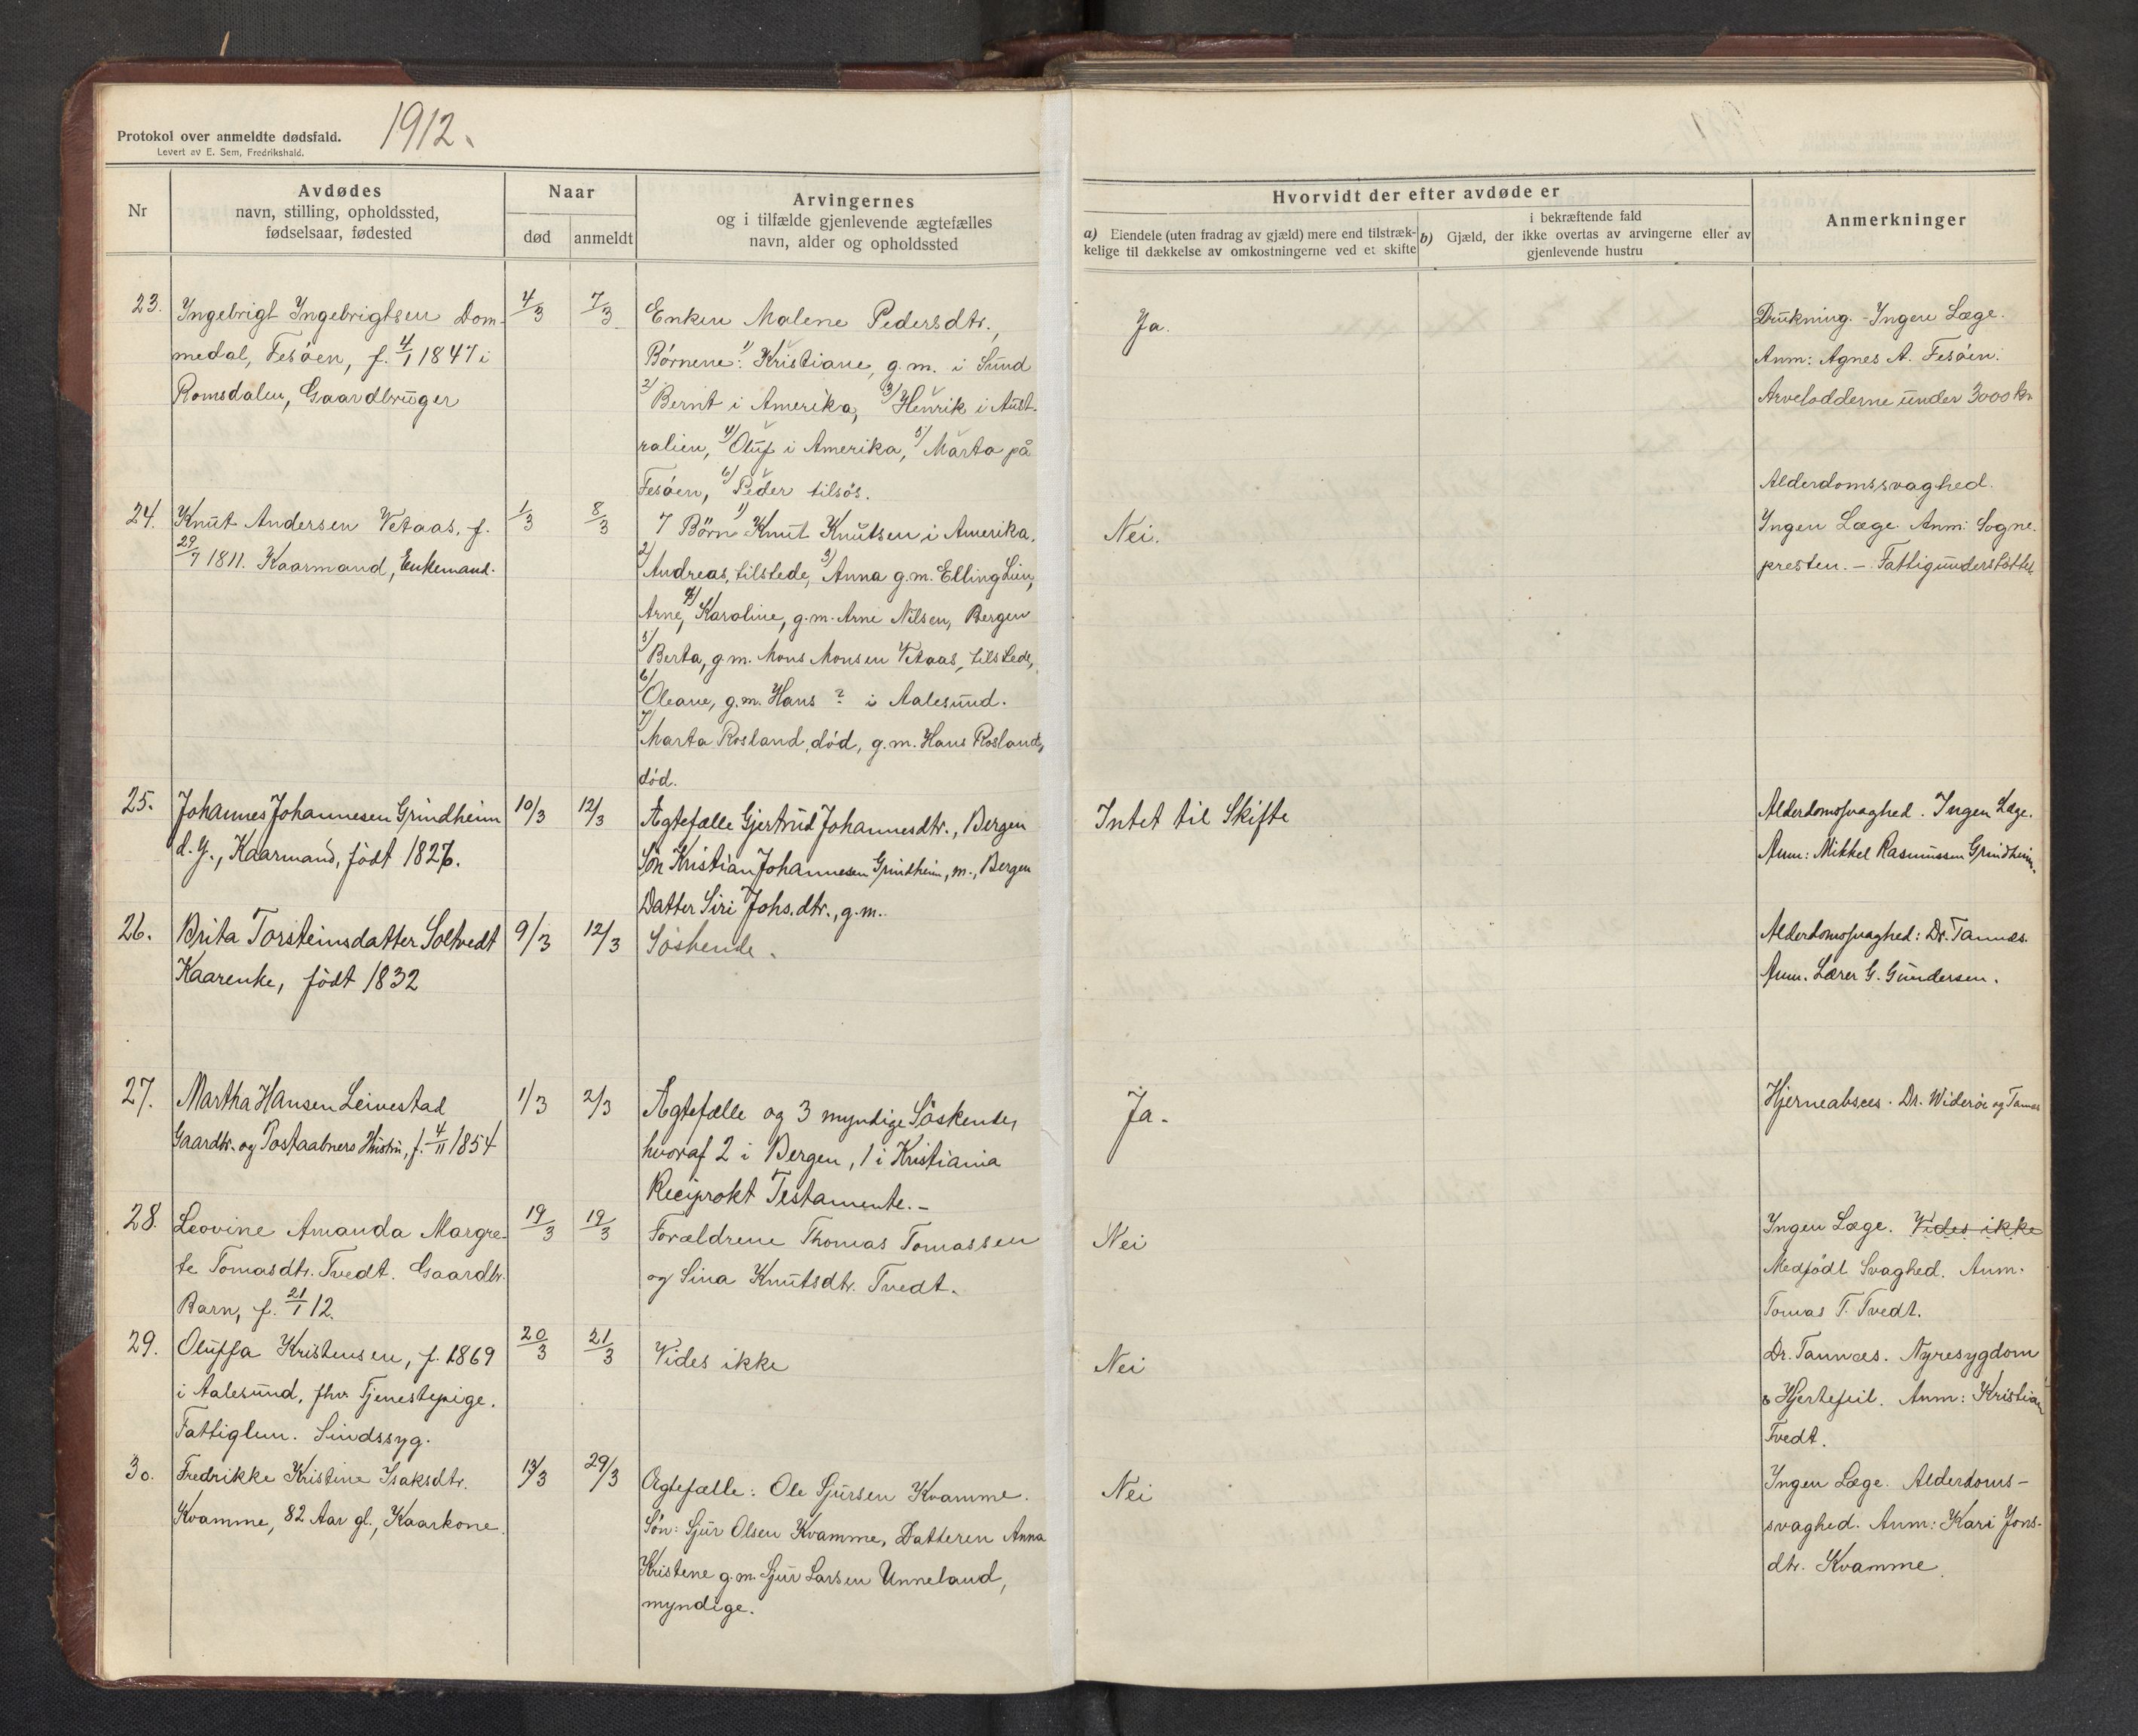 1912.
Protokol over anmeldte dødsfald.
Levert av E. Sem, Fredrikshald.
Nr
Avdødes
navn, stilling, opholdssted,
fødselsaar, fødested
Naar
død
anmeldt
Arvingernes
og i tilfælde gjenlevende ægtefælles
navn, alder og opholdssted
Hvorvidt der efter avdøde er
a) Eiendele (uten fradrag av gjæld) mere end tilstræk-
kelige til dækkelse av omkostningerne ved et skifte
i bekræftende fald
b) Gjæld, der ikke overtas av arvingerne eller av
gjenlevende hustru
Anmerkninger
23.
Ingebrigt Ingebrigtsen Dom-
medal, Fesøen, f. 4/1 1847 i
Romsdalen, Gaardbruger
4/3
7/3
Enken Malene Pedersdtr.,
Børnene: 1) Kristiane, g.m. i Sund
2) Bernt i Amerika, 3) Henrik i Aust-
ralien, 4) Oluf i Amerika, 5) Marta på
Fesøen, 6) Peder tilsøs.
Ja.
Drukning. - Ingen Læge.
Anm: Agnes A. Fesøen.
Arvelodderne under 3000 kr
24.
Knut Andersen Vetaas, f.
29/7 1811. Kaarmand, Enkemand.
1/3
8/3
7 Børn 1) Knut Knutsen i Amerika.
2) Andreas, tilstede, 3) Anna g.m. Elling Lien,
Arne, 4) Karoline, g.m. Arne Nilsen, Bergen
5) Berta, g.m. Mons Monsen Vetaas, tilstede,
6) Oleane, g.m. Hans ? i Aalesund.
7) Marta Rosland, død, g.m. Hans Rosland,
død.
Nei.
Alderdomssvaghed.
Ingen Læge. Anm: Sogne-
presten. - Fattigunderstøttet
25.
Johannes Johannesen Grindheim
d.y., Kaarmand, født 1826.
10/3
12/3
Ægtefælle Gjertrud Johannesdtr., Bergen
Søn Kristian Johannesen Grindheim, m., Bergen
Datter Siri Johs.dtr., g.m.
Intet til Skifte
Alderdomssvaghed. Ingen Læge.
Anm: Mikkel Rasmussen Grindheim.
26.
Brita Torsteinsdatter Soltvedt
Kaarenke, født 1832
9/3
12/3
Søskende.
Alderdomssvaghed: Dr. Tannæs.
Anm. Lærer G. Gundersen.
27.
Martha Hansen Leivestad
Gaardbr. og Postaabners Hustru, f. 4/11 1854
1/3
2/3
Ægtefælle og 3 myndige Søskende,
hvoraf 2 i Bergen, 1 i Kristiania
Reciprokt Testamente. -
Ja.
Hjerneabsces. Dr. Widerøe og Tannæs
28.
Leovine Amanda Margre-
te Tomasdtr. Tvedt. Gaardbr.
Barn, f. 21/1 12.
19/3
19/3
Forældrene Thomas Tomassen
og Sina Knutsdtr. Tvedt.
Nei
Ingen Læge. Vides ikke
Medfødt Svaghed. Anm.
Tomas T. Tvedt.
29.
Oluffa Kristensen, f. 1869
i Aalesund, fhv. Tjenestepige.
Fattiglem. Sindssyg.
20/3
21/3
Vides ikke
Nei
Dr. Tannæs. Nyresygdom
& Hjertefeil. Anm: Kristian
Tvedt.
30.
Fredrikke Kristine Isaksdtr.
Kvamme, 82 Aar gl., Kaarkone.
13/3
29/3
Ægtefælle: Ole Sjursen Kvamme.
Søn: Sjur Olsen Kvamme, Datteren Anna
Kristene g.m. Sjur Larsen Unneland,
myndige.
Nei
Ingen Læge. Alderdoms-
svaghed. Anm: Kari Jons-
dtr. Kvamme.